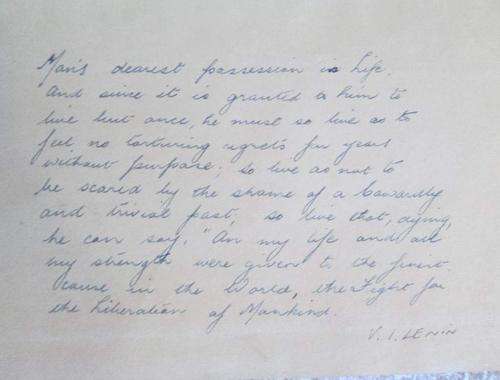 Man's dearest possession is Life.
And since it is granted a him to
live but once, he must so live as to
feel no torturing regrets for years
without purpose; so live as not to
be scared by the shame of a Cowardly
and trivial past; so live that, dying,
he can say, "All my life and all
my strength were given to the finest
cause in the World, the Fight for
the Liberation of Mankind.
V. I. LENIN